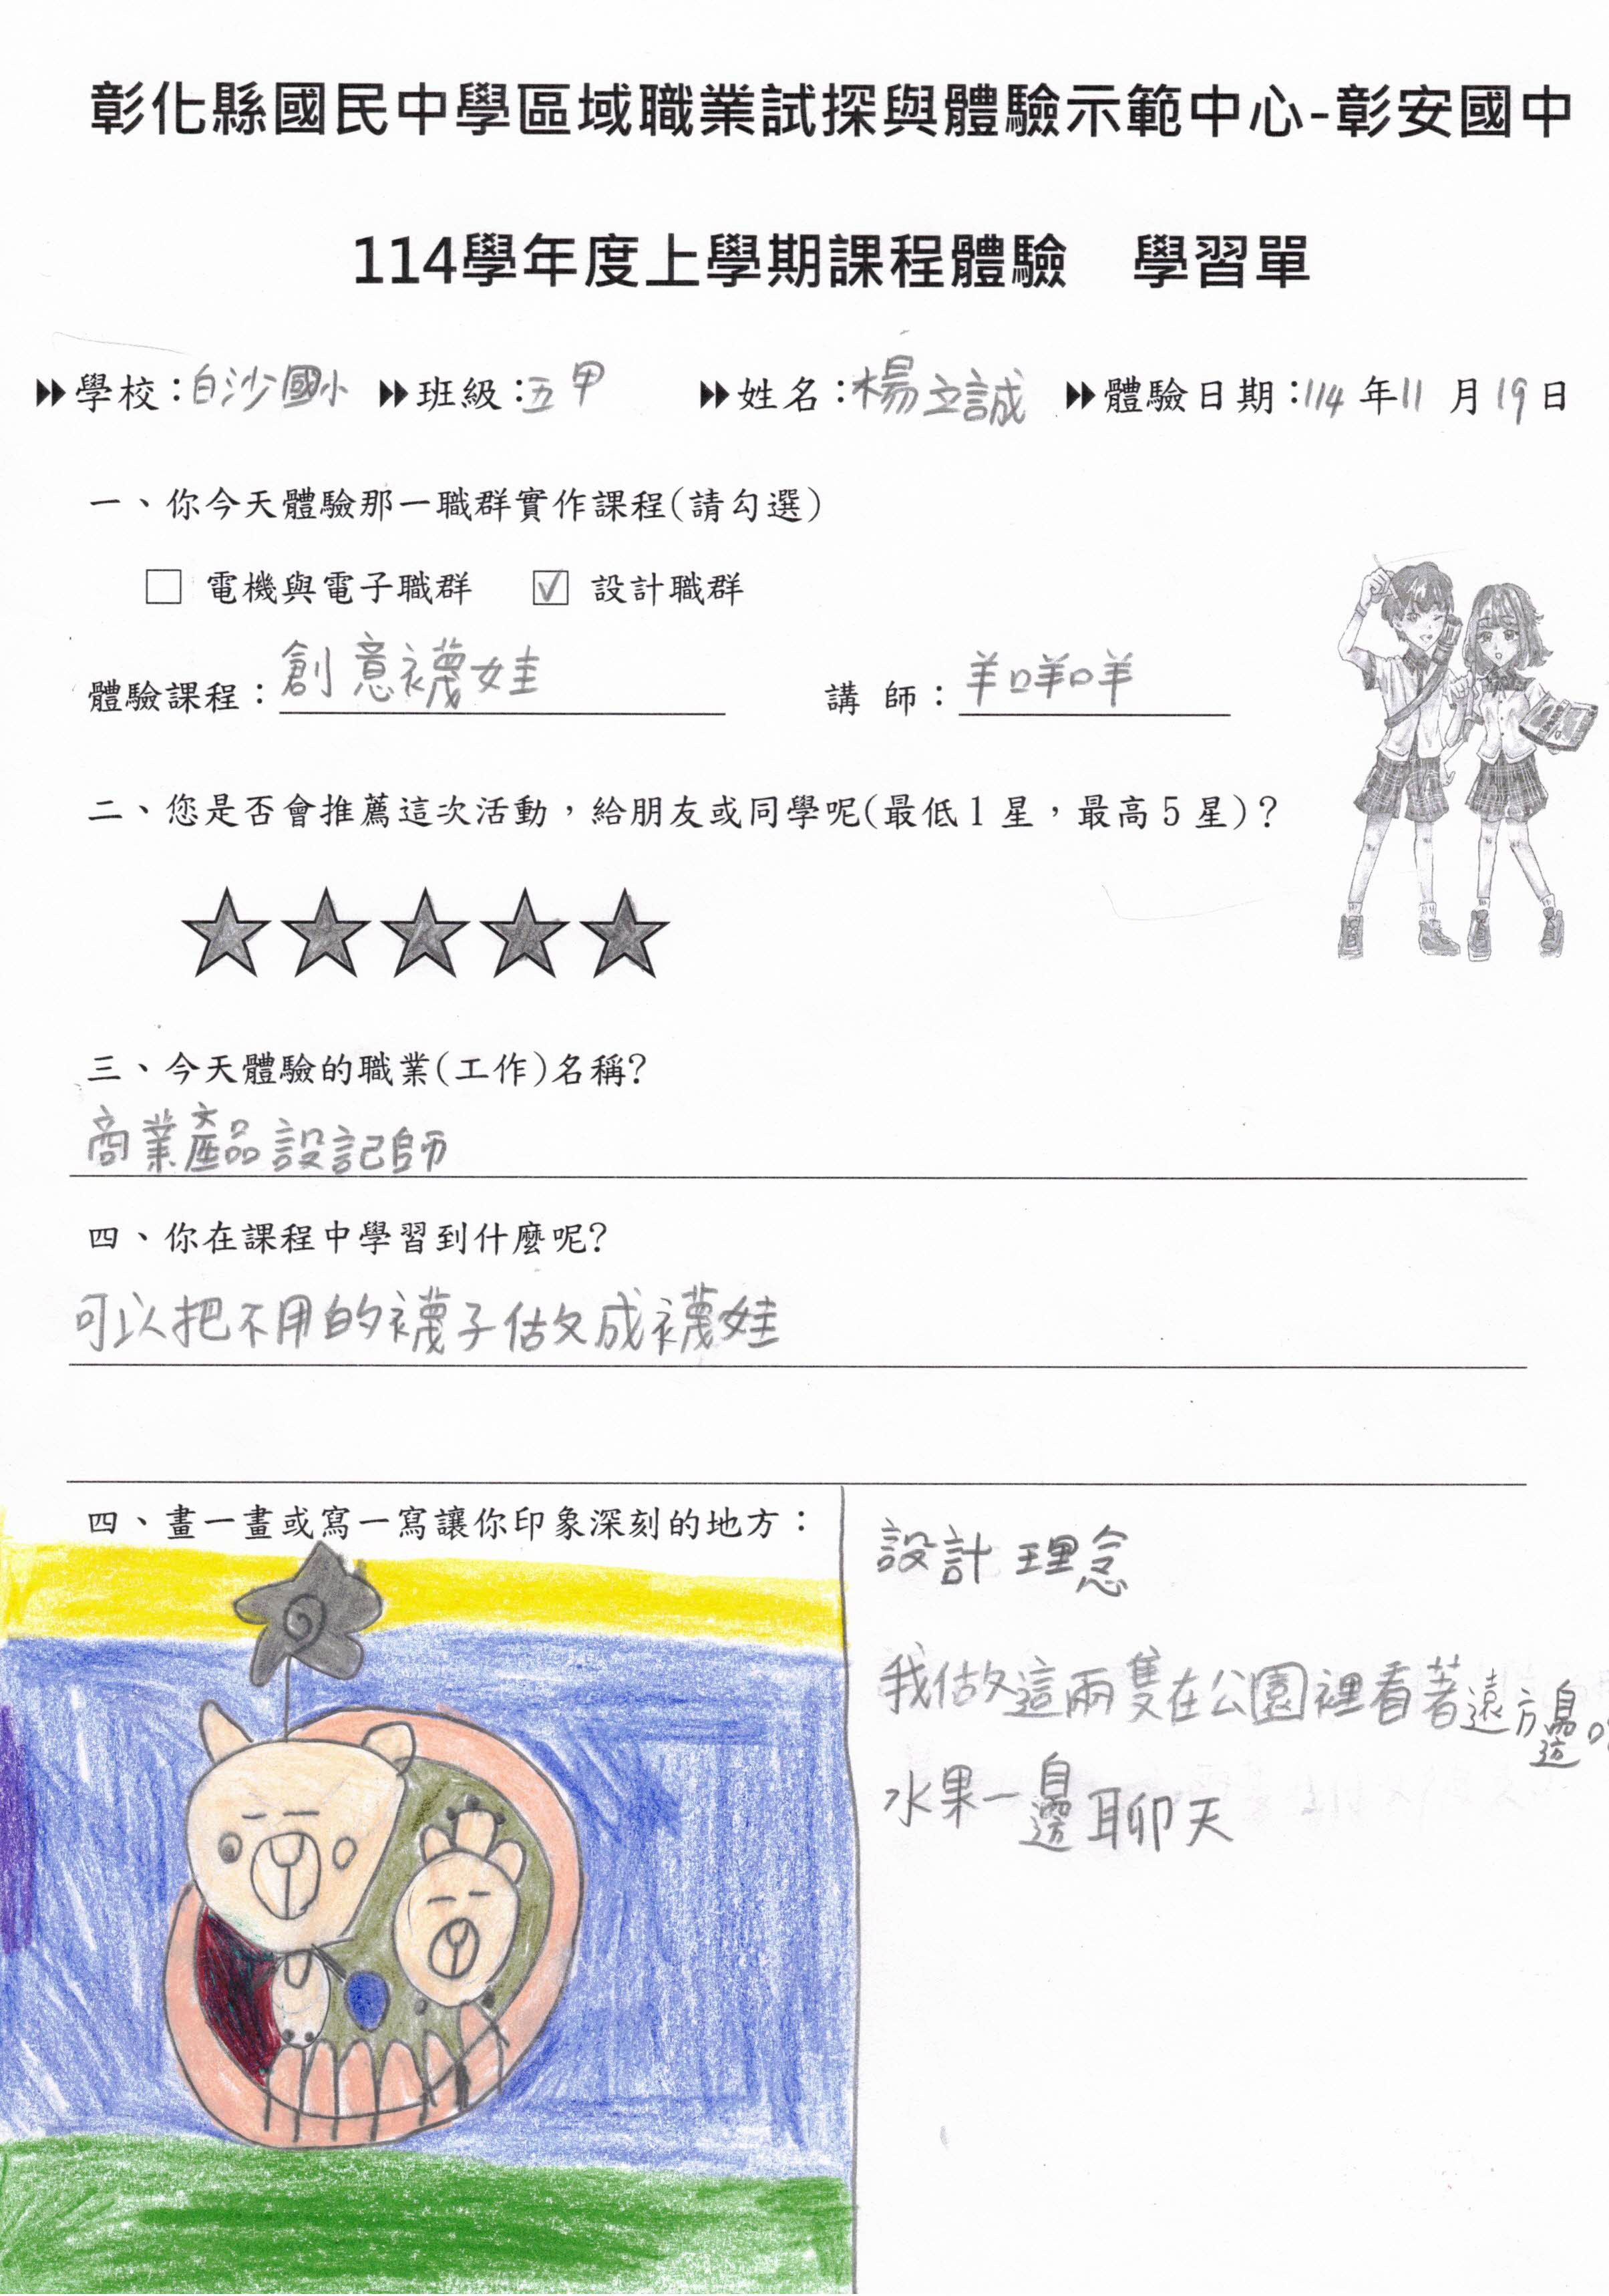 彰化縣國民中學區域職業試探與體驗示範中心-彰安國中
114學年度上學期課程體驗　學習單
學校：白沙國小 班級：五甲 姓名：楊立誠 體驗日期：114年11月19日
一、你今天體驗那一職群實作課程(請勾選)
□ 電機與電子職群 ☑ 設計職群
體驗課程：創意襪娃 講師：羊咩咩
二、您是否會推薦這次活動，給朋友或同學呢(最低1星，最高5星)？
★★★★★
三、今天體驗的職業(工作)名稱?
商業產品設記師
四、你在課程中學習到什麼呢?
可以把不用的襪子做成襪娃
四、畫一畫或寫一寫讓你印象深刻的地方：
設計理念
我做這兩隻在公園裡看著遠方邊
水果一邊聊天